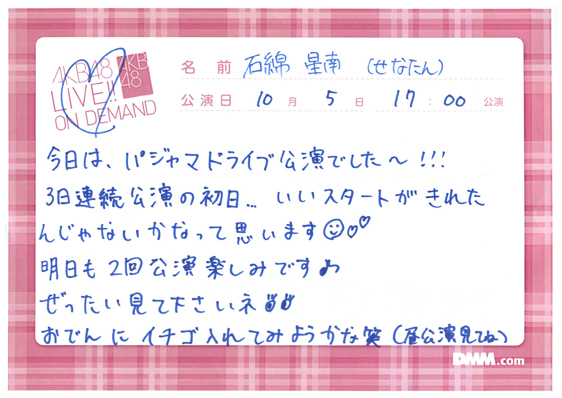 AKB48
LIVE!!
ON DEMAND
AKB
48
名前 石綿 星南 (せなたん)
公演日 10月 5日 17:00 公演
今日は、パジャマドライブ公演でした〜!!!
3日連続公演の初日… いいスタートがきれた
んじゃないかなって思います
明日も2回公演楽しみです♪
ぜったい見て下さいネ
おでんにイチゴ入れてみようかな笑 (昼公演見てね)
DMM.com